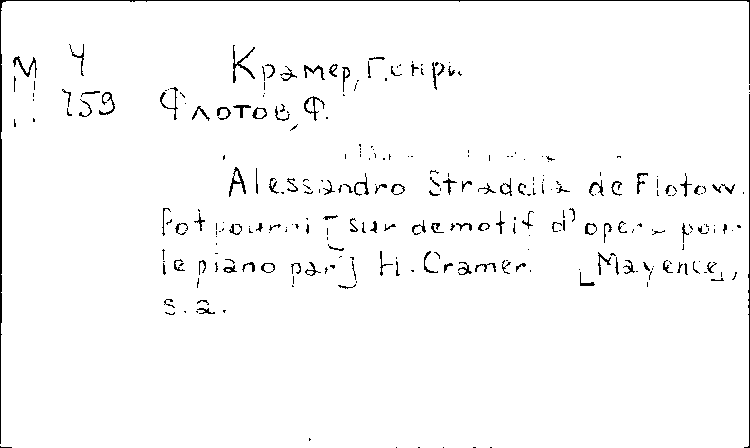 М Ч Крамер, Генри
759 Флотов, Ф.
Alessandro Stradella de Flotow.
Potpourri [sur de motif d'opera pour
le piano par] H. Cramer. [Mayence],
s.a.